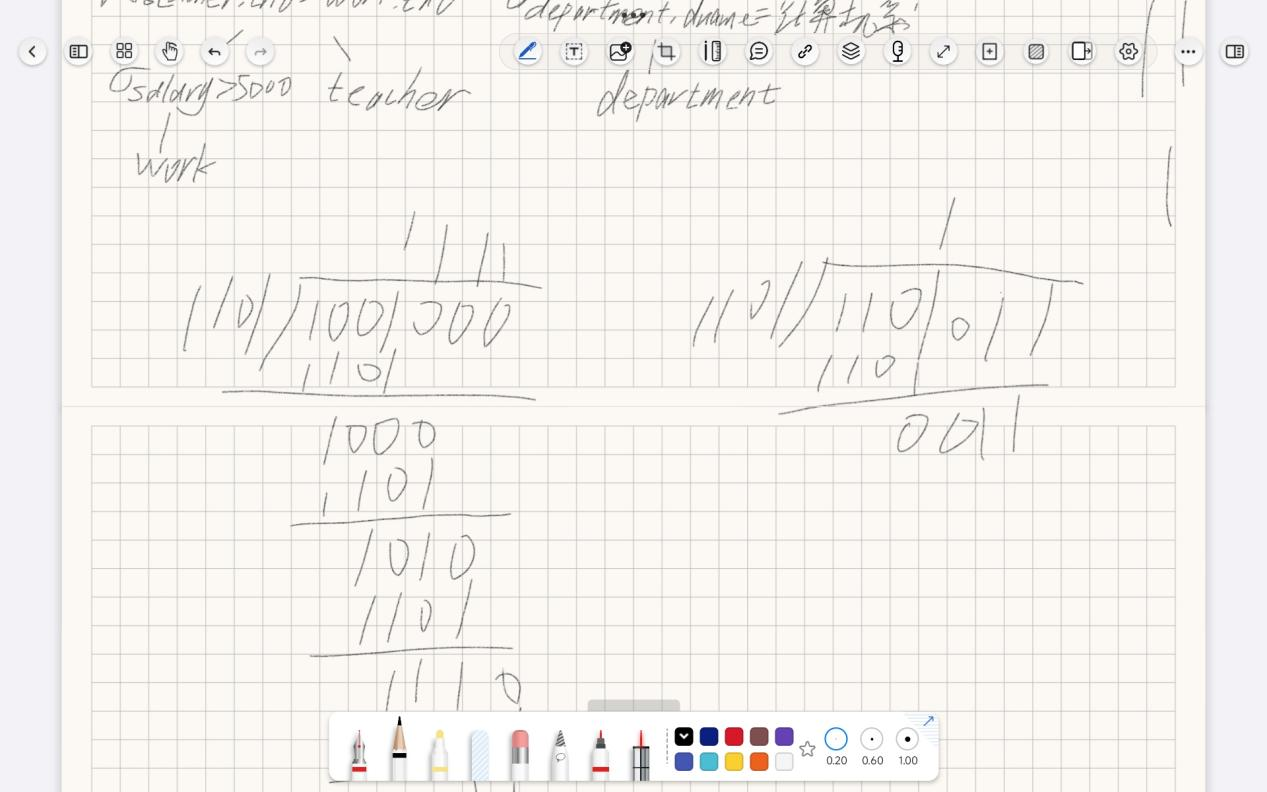 department.dname='计算机系'
σsalary>5000 teacher department
work
1 1 1 1
1
1101)1001000
1101)1101011
1101
1101
0011
1000
1101
1010
1101
1110
0.20 0.60 1.00